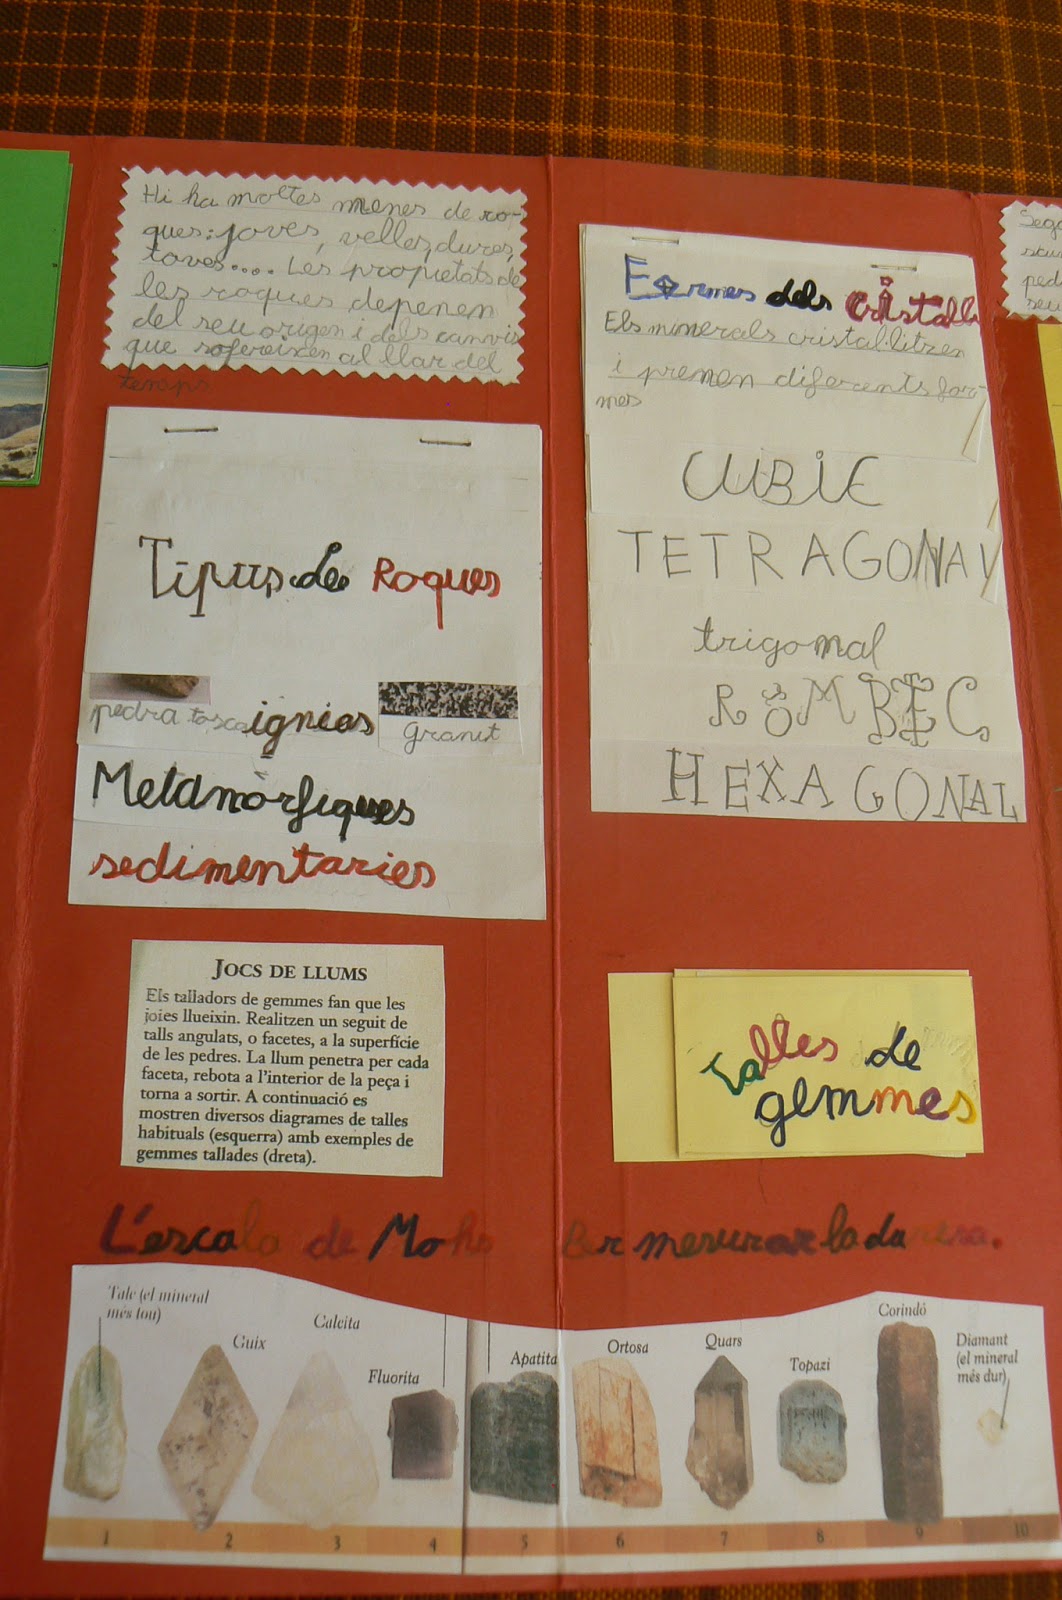 Hi ha moltes menes de ro-
ques: joves, velles, dures,
toves.... Les propietats de
les roques depenen
del seu origen i dels canvis
que sofereixen al llar del
temps
Tipus de Roques
pedra tosca
ígnies
granit
Metamòrfiques
sedimentaries
Formes dels cristalls
Els minerals cristal·litzen
i prenen diferents for-
mes
CUBIC
TETRAGONAL
trigonal
ROMBEC
HEXAGONAL
JOCS DE LLUMS
Els talladors de gemmes fan que les
joies llueixin. Realitzen un seguit de
talls angulats, o facetes, a la superfície
de les pedres. La llum penetra per cada
faceta, rebota a l'interior de la peça i
torna a sortir. A continuació es
mostren diversos diagrames de talles
habituals (esquerra) amb exemples de
gemmes tallades (dreta).
Talles de
gemmes
L'escala de Mohs Per mesurar la duresa.
Talc (el mineral
més tou)
Guix
Calcita
Fluorita
Apatita
Ortosa
Quars
Topazi
Corindó
Diamant
(el mineral
més dur)
1 2 3 4 5 6 7 8 9 10